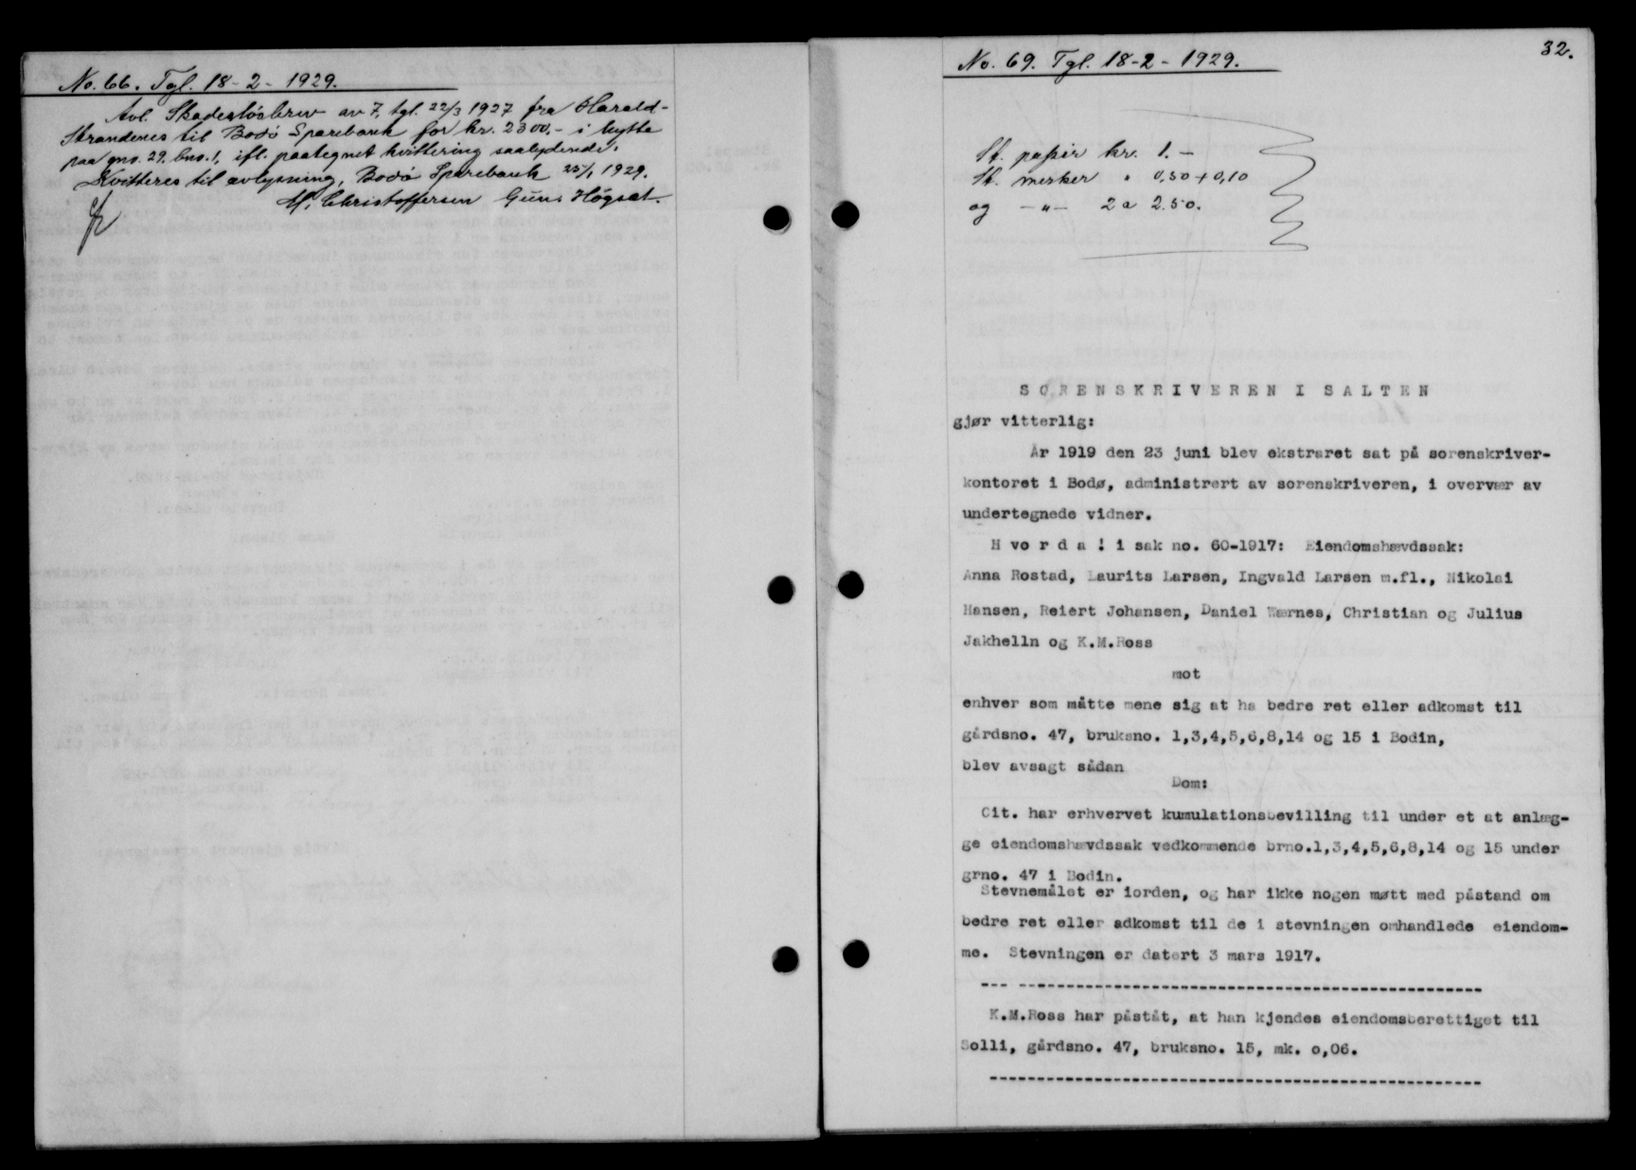 No. 66. Tgl. 18-2-1929.
Avl. Skadesløsbrev av 7, tgl. 22/3 1927 fra Harald
Strandenes til Bodö Sparebank for kr. 2300,- i hytte
paa gno. 29. bno. 1, ifl. paategnet kvittering saalydende:
Kvitteres til avlysning, Bodö Sparebank 25/1 1929.
M. Christoffersen
No. 69. Tgl. 18-2-1929.
32.
St. papir kr. 1.-
St. merker " 0,50 + 0,10
og -"- 2 a 2.50.
SORENSKRIVEREN I SALTEN
gjør vitterlig:
År 1919 den 23 juni blev ekstraret sat på sorenskriver-
kontoret i Bodø, administrert av sorenskriveren, i overvær av
undertegnede vidner.
H v o r d a ! i sak no. 60-1917: Eiendomshævdssak:
Anna Rostad, Laurits Larsen, Ingvald Larsen m.fl., Nikolai
Hansen, Reiert Johansen, Daniel Wærnes, Christian og Julius
Jakhelln og K.M.Ross
mot
enhver som måtte mene sig at ha bedre ret eller adkomst til
gårdsno. 47, bruksno. 1,3,4,5,6,8,14 og 15 i Bodin,
blev avsagt sådan
Dom:
Cit. har erhvervet kumulationsbevilling til under et at anlæg-
ge eiendomshævdssak vedkommende brno.1,3,4,5,6,8,14 og 15 under
grno. 47 i Bodin.
Stevnemålet er iorden, og har ikke nogen møtt med påstand om
bedre ret eller adkomst til de i stevningen omhandlede eiendom-
me. Stevningen er datert 3 mars 1917.
K.M.Ross har påståt, at han kjendes eiendomsberettiget til
Solli, gårdsno. 47, bruksno. 15, mk. o,06.